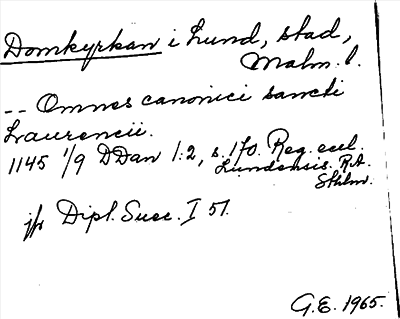 Domkyrkan i Lund, stad,
Malm. l.
-- Omnes canonici sancti
Laurencii.
1145 1/9 DDan 1:2, s. 170. Reg. eccl.
Lundensis. RA.
Sthlm.
jfr Dipl. Suec. I 51.
G.E. 1965.